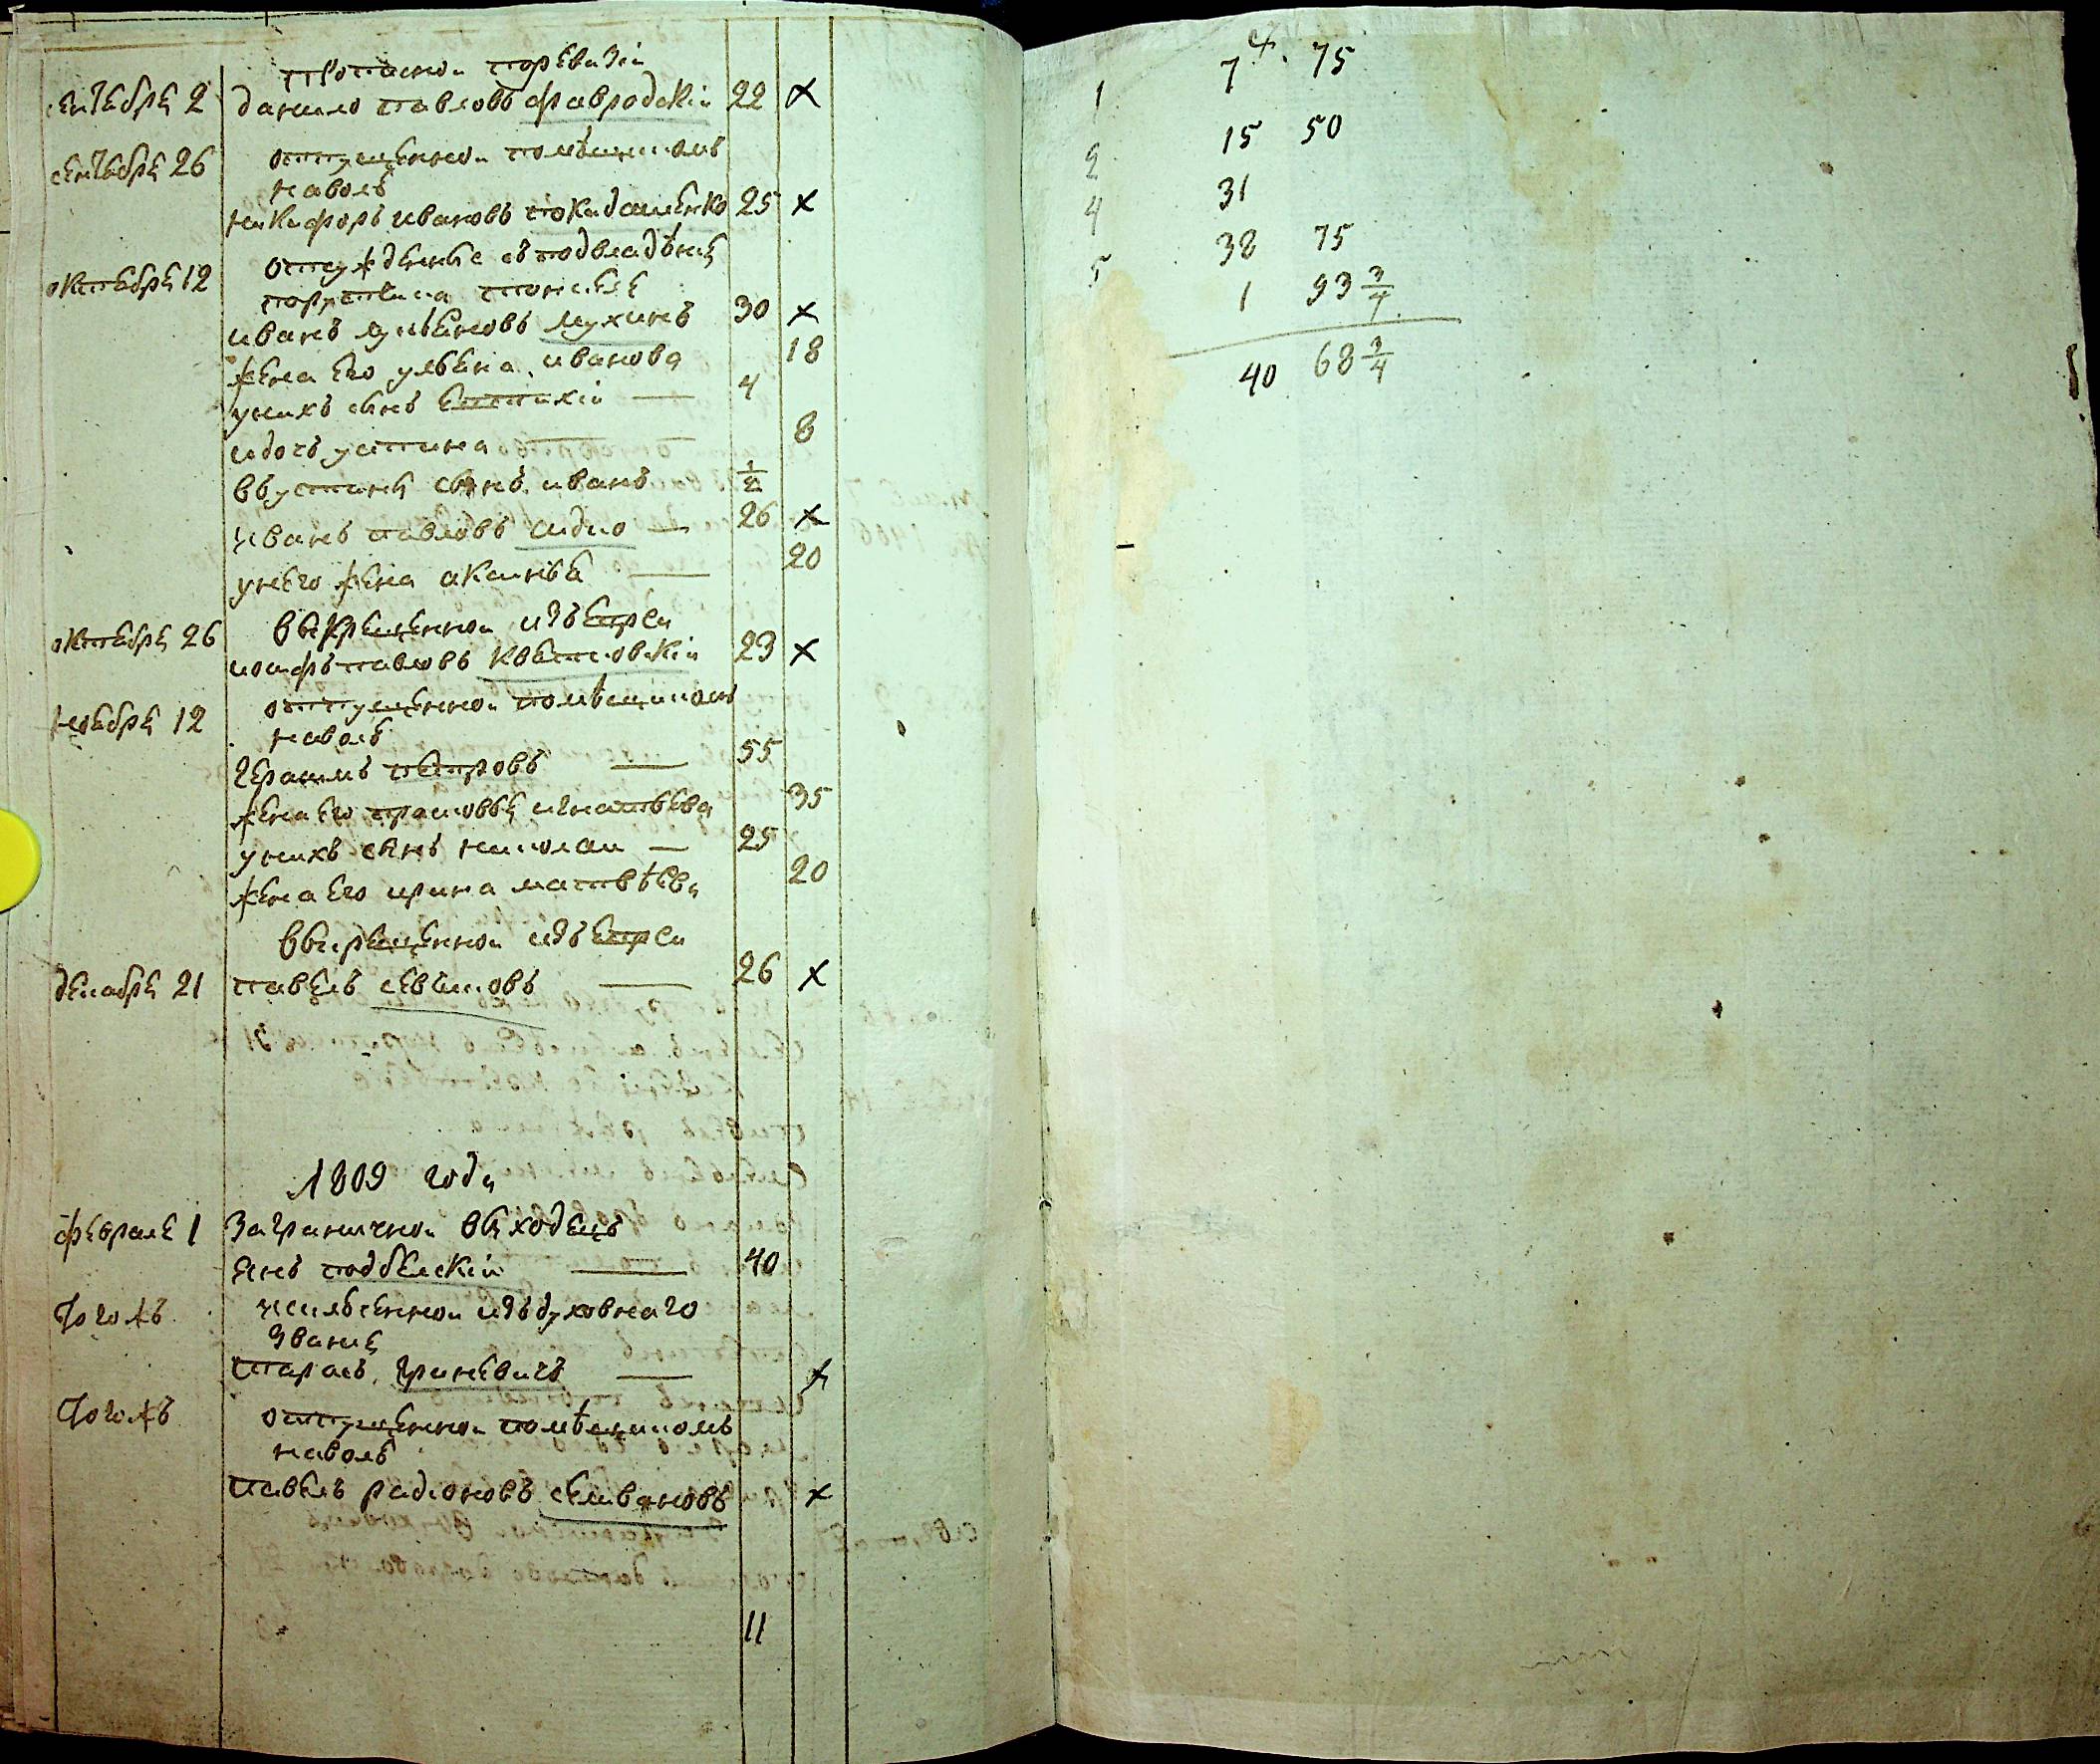 прописной поревизіи
сентебря 2 данило павловъ фавродскій 22 х
сентебря 26 отпущенной помѣщикомъ
наволю
никифоръ ивановъ покидаленко 25 х
октебря 12 отсужденные съ подвладѣния
поручика
иванъ лукьяновъ мухинъ 30 х
жена его ульяна иванова 18
уних сынъ евтихій — 4
идочь устина — 8
вустини сынъ иванъ 1/2
иванъ павловъ сидло — 26 х
унего жена аксинья — 20
октебря 26 выкрещенной изъ евреи
иосифъ павловъ квятковскій 23 х
ноября 12 отпущенной помѣщикомъ
наволю
герасимъ петровъ — 55
жена его прасковья игнатьева 35
унихъ сынъ николаи — 25
жена его ирина матвѣева 20
выкрещенной изъ евреи
декабря 21 павелъ севѣтиновъ — 26 х
1809 года
февраля 1 заграничной выходецъ
янъ подбелскій — 40
Того жъ исключенной изъ духовнаго
звания
тарасъ гриневичъ — х
Того жъ отпущенной помѣщикомъ
наволю
павелъ радионовъ селивановъ х
11
1 7 ч. 75
2 15 50
4 31
5 38 75
1 93 3/4
40 68 3/4